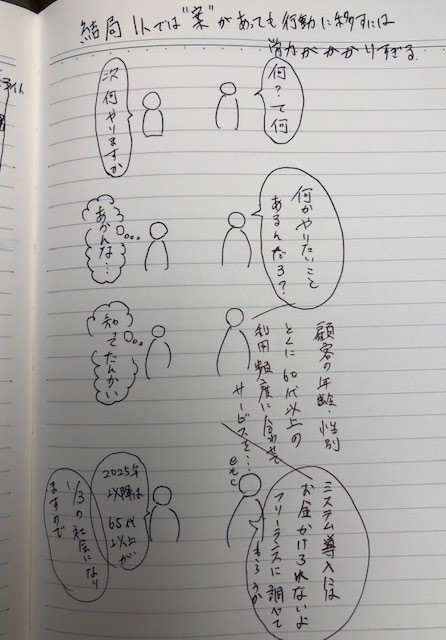 結局1人では“案”があっても行動に移すには
労力がかかりすぎる
何？て何
次何やりますか
何かやりたいこと
あるんだろ？
あかんな…
顧客の年齢・性別
とくに60代以上の
利用頻度に合わせ
サービスを…etc
知ってたんかい
システム導入は
お金かけられないよ
フリーランスに調べて
もらうか
2025年
以降は
65代
以上が
1/3の社会になり
ますので
イト